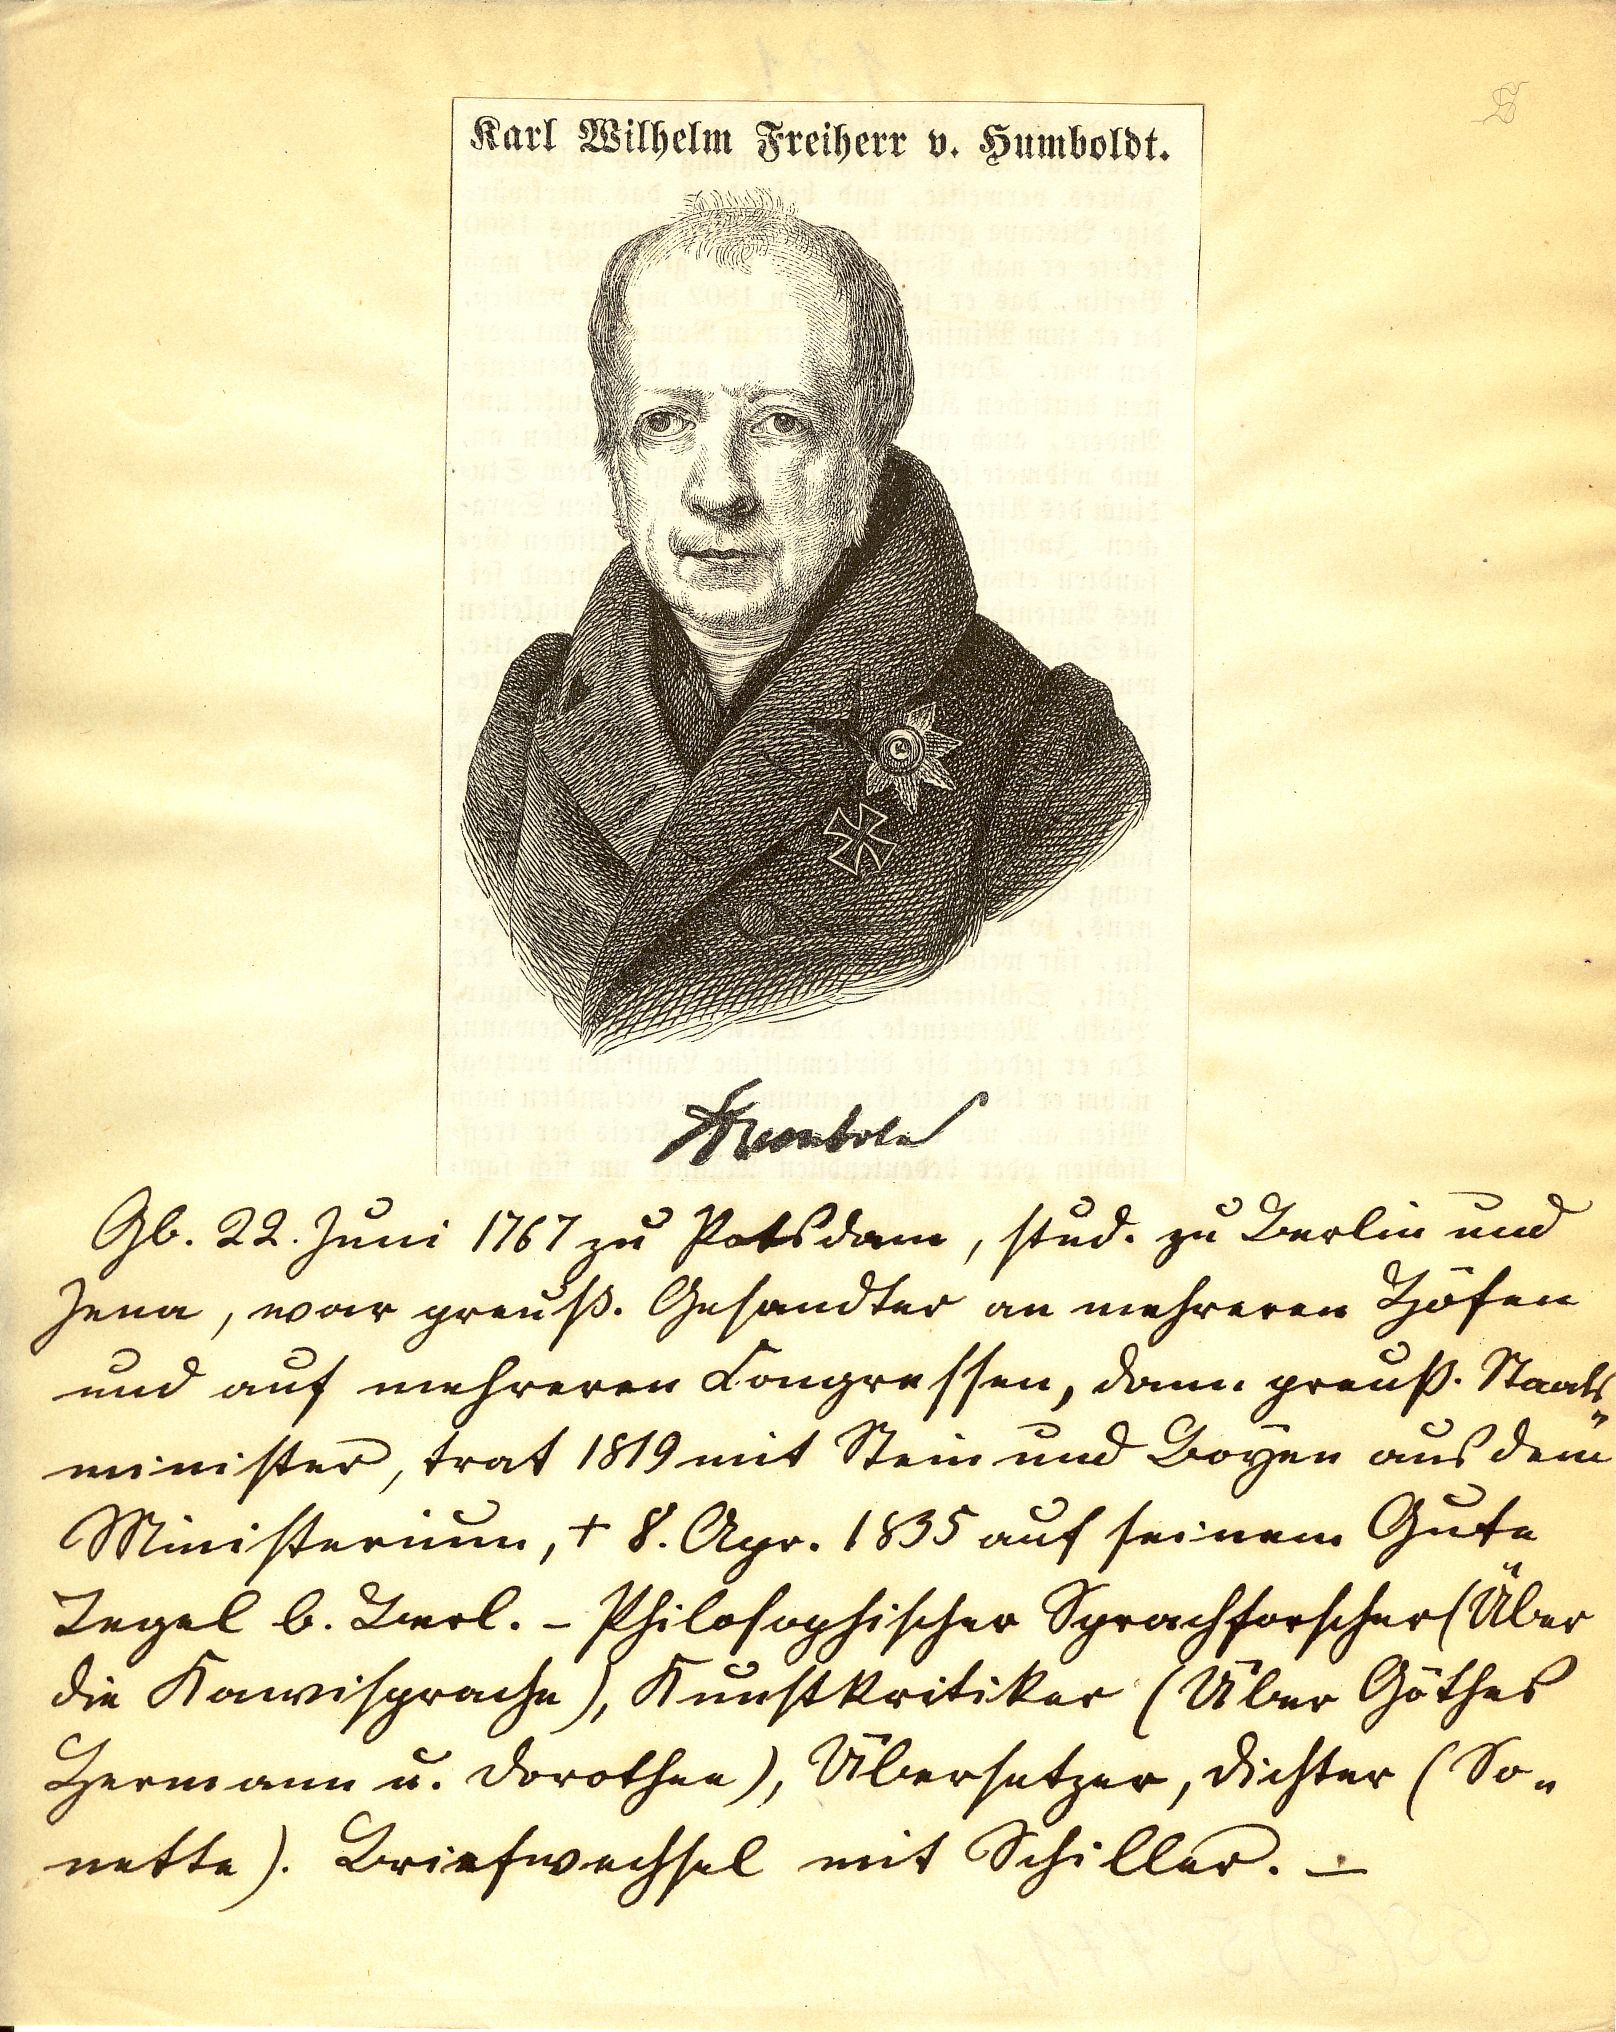 Karl Wilhelm Freiherr v. Humboldt.
Humboldt
Gb. 22. Juni 1767 zu Potsdam, stud. zu Berlin und
Jena, war preuß. Gesandter an mehreren Höfen
und auf mehreren Congressen, dann preuß. Staats-
minister, trat 1819 mit Stein und Boyen aus dem
Ministerium, † 8. Apr. 1835 auf seinem Gute
Tegel b. Berl. – Philosophischer Sprachforscher (Über
die Kawisprache), Kunstkritiker (Über Göthes
Hermann u. Dorothee), Übersetzer, Dichter (So-
nette). Briefwechsel mit Schiller. –